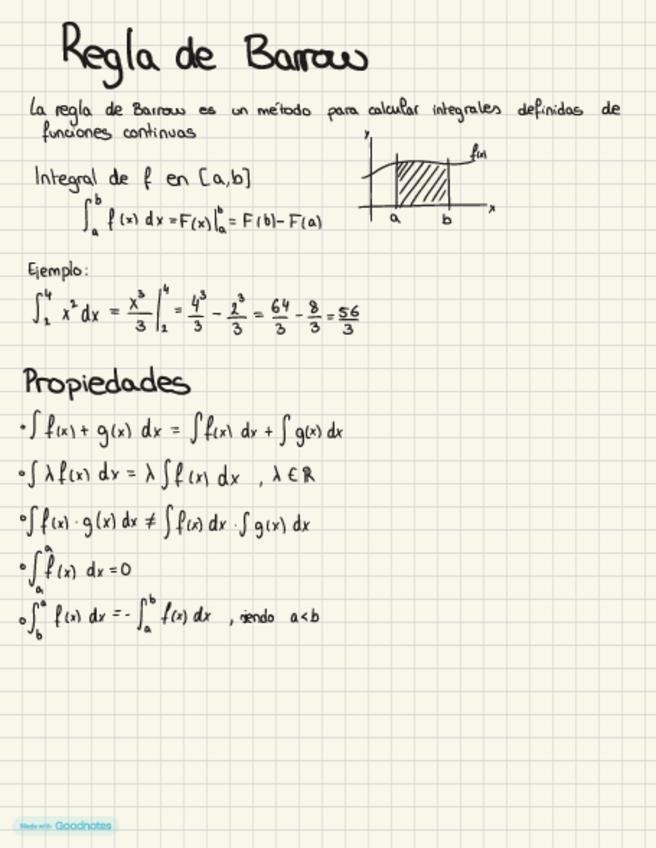 Regla de Barrow
La regla de Barrow es un método para calcular integrales definidas de
funciones continuas
y
f(x)
a b x
Integral de f en [a,b]
∫_a^b f(x) dx = F(x)|_a^b = F(b) - F(a)
Ejemplo:
∫_2^4 x² dx = x³/3 |_2^4 = 4³/3 - 2³/3 = 64/3 - 8/3 = 56/3
Propiedades
• ∫ f(x) + g(x) dx = ∫ f(x) dx + ∫ g(x) dx
• ∫ λ f(x) dx = λ ∫ f(x) dx , λ ∈ ℝ
• ∫ f(x) · g(x) dx ≠ ∫ f(x) dx · ∫ g(x) dx
• ∫_a^a f(x) dx = 0
• ∫_b^a f(x) dx = - ∫_a^b f(x) dx , siendo a < b
Made with Goodnotes